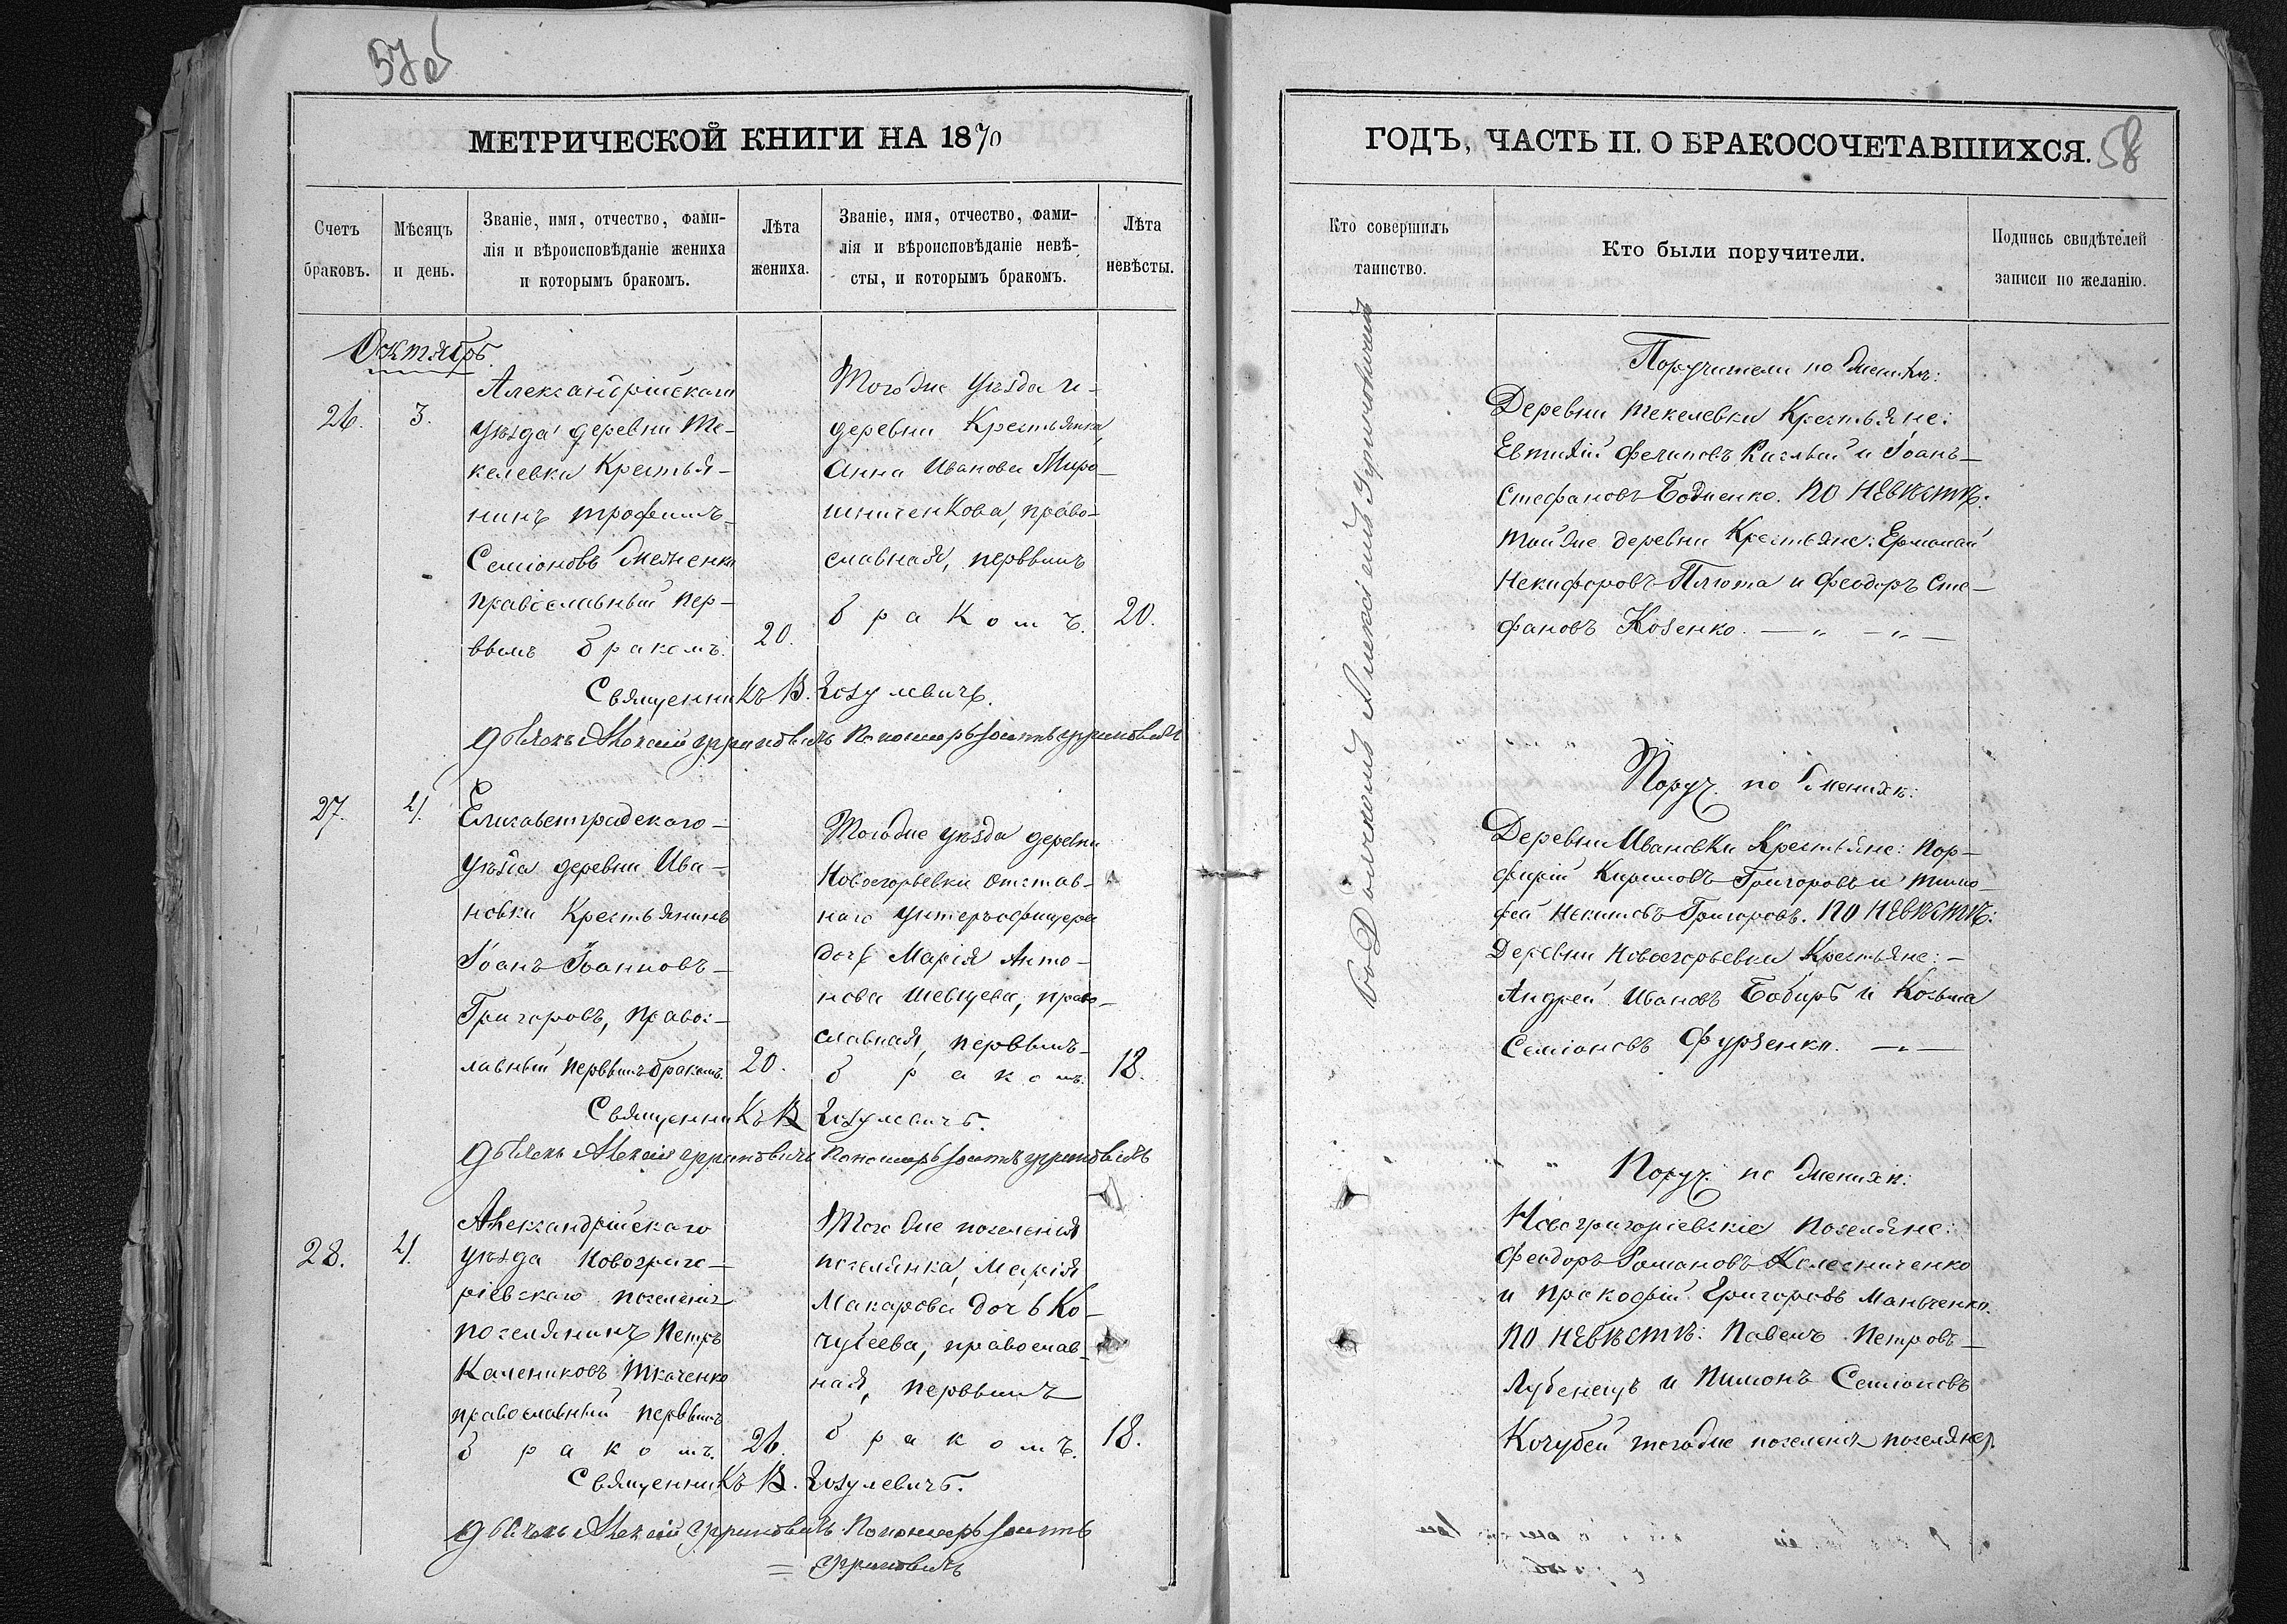 57об
МЕТРИЧЕСКОЙ КНИГИ НА 1870
Счетъ браковъ.
Мѣсяцъ и день.
Званіе, имя, отчество, фами-
лія и вѣроисповѣданіе жениха
и которымъ бракомъ.
Лѣта жениха.
Званіе, имя, отчество, фами-
лія и вѣроисповѣданіе невѣ-
сты, и которымъ бракомъ.
Лѣта невѣсты.
Октябрь.
26.
3.
Александрійскаго
уѣзда деревни Те-
келевки Крестья-
нинъ Трофимъ
Семіоновъ
православный пер-
вымъ бракомъ.
20.
Тогоже уѣзда и
деревни Крестьянка
Анна Иванова Миро-
шниченкова, право-
славная, первымъ
бракомъ.
20.
Священникъ В. Зозулевичъ.
Дьячокъ Алексій Уриновичъ Пономарь Уриновичъ
27.
4.
Елисаветградскаго
уѣзда деревни Ива-
новки Крестьянинъ
Іоанъ Іоанновъ
Григоровъ, правос-
лавный первымъ бракомъ.
20.
Тогоже уѣзда деревни
Новоегорьевки отстав-
наго унтеръофицера
дочь Марія Анто-
нова Шевцева, право-
славная, первымъ
бракомъ.
18.
Священникъ В. Зозулевичъ.
Дьячокъ Алексій Уриновичъ Пономарь Уриновичъ
28.
4.
Александрійскаго
уѣзда Новогриго-
ріевскаго поселенія
поселянинъ Петръ
Калениковъ Ткаченко
православный первымъ
бракомъ.
26.
Тогоже поселенія
поселянка, Марія
Макарова дочь Ко-
чубеева, православ-
ная, первымъ
бракомъ.
18.
Священникъ В. Зозулевичъ.
Дьячокъ Алексій Уриновичъ Пономарь
Уриновичъ
ГОДЪ, ЧАСТЬ II. О БРАКОСОЧЕТАВШИХСЯ.
58
Кто совершилъ
таинство.
Кто были поручители.
Подпись свидѣтелей
записи по желанію.
Поручители по женихѣ:
Деревни Текелевки Крестьяне:
Евтихій Филиповъ и Іоанъ
Стефановъ Бодненко. По невѣстѣ:
Тойже деревни Крестьяне: Ермолай
Никифоровъ Плюта и Феодоръ Сте-
фановъ Козенко.
Поруч. по женихѣ:
Деревни Ивановки Крестьяне: Пор-
фирій Кириловъ Григоровъ и Тимо-
фей Никитовъ Григоровъ. По невѣстѣ:
Деревни Новоегорьевки Крестьяне:
Андрей Ивановъ Бобирь и Козьма
Семіоновъ Фурзенко.
Поруч. по женихѣ:
Новогригоріевскіе Поселяне:
Феодоръ Романовъ Колесниченко
и Прокофій Григоровъ Манченко.
По невѣстѣ: Павелъ Петровъ
Лубенецъ и Пимонъ Семіоновъ
Кочубей тогоже поселенія поселяне.